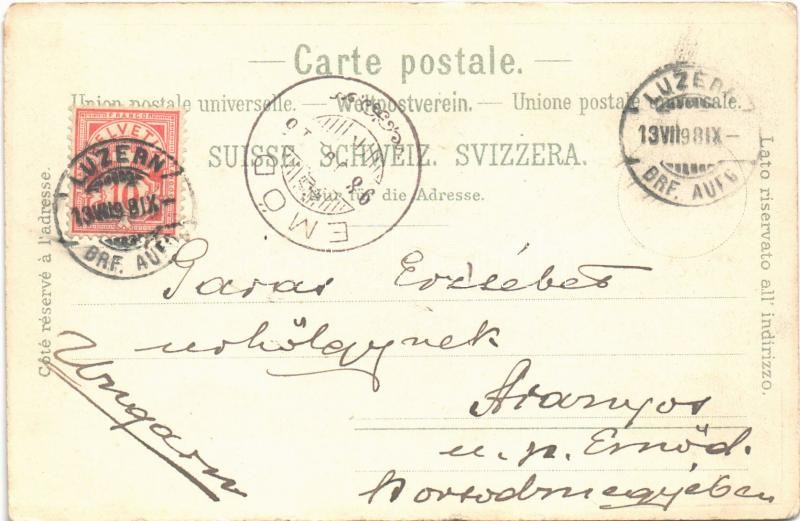 Carte postale.
Union postale universelle. — Weltpostverein. — Unione postale universale.
SUISSE. SCHWEIZ. SVIZZERA.
Nur für die Adresse.
Côté réservé à l'adresse.
Lato riservato all' indirizzo.
FRANCO
HELVETIA
10
LUZERN
13 VII 98 IX –
BRF. AUFG
EMÖD
LUZERN
13 VII 98 IX –
BRF. AUFG
Garas Erzsébet
urhölgynek
Aranyos
u. p. Emőd.
Borsodmegyében
Ungarn